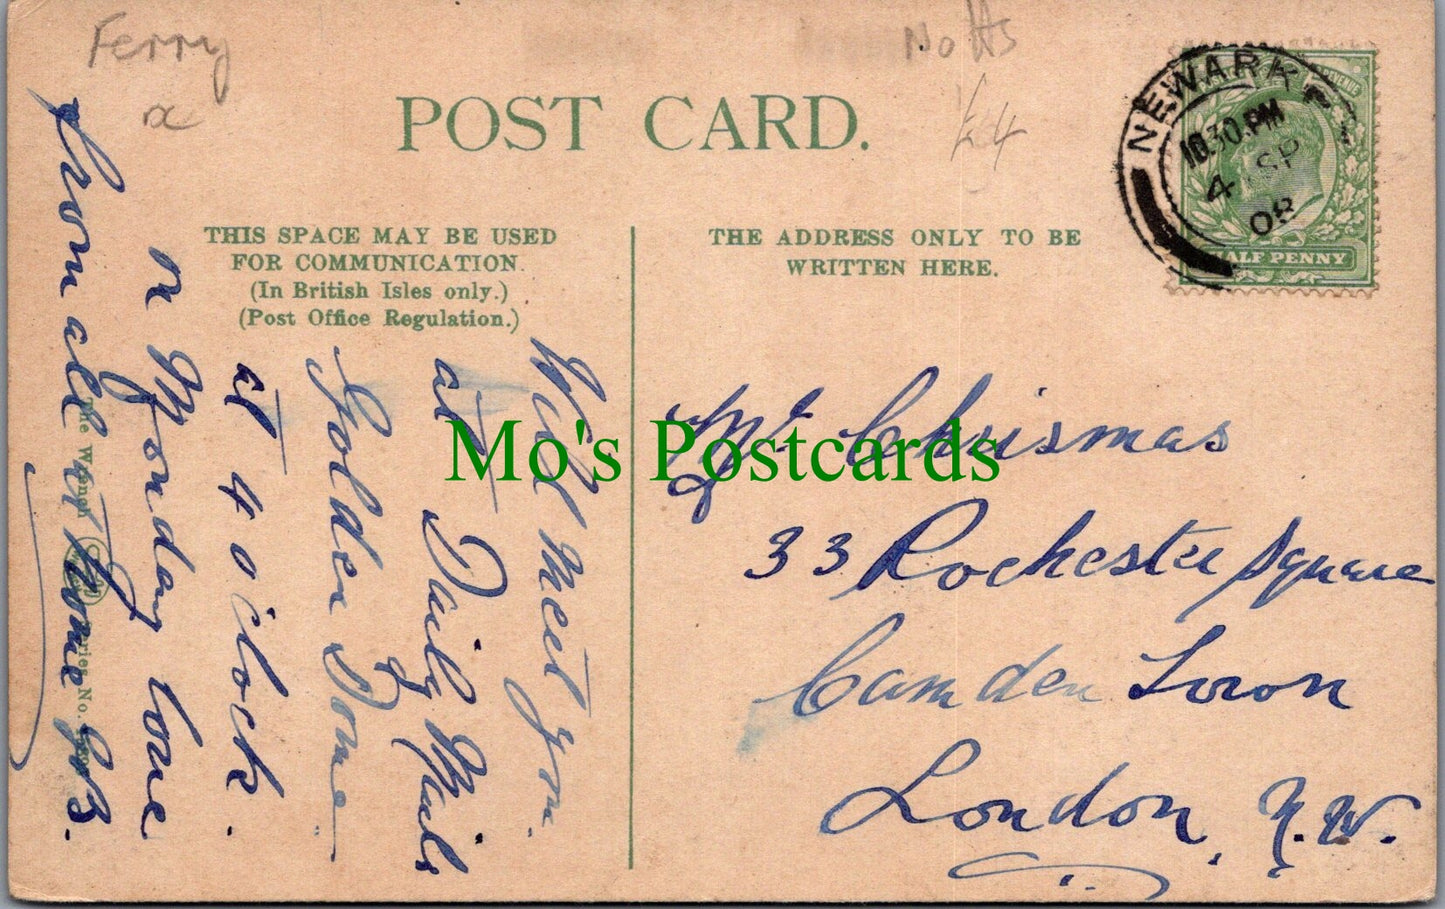 Ferry
x
Notts
£4
POST CARD.
NEWARK
10.30.PM
4 SP
08
HALF PENNY
THIS SPACE MAY BE USED
FOR COMMUNICATION.
(In British Isles only.)
(Post Office Regulation.)
THE ADDRESS ONLY TO BE
WRITTEN HERE.
Will meet you
at Daily Mail
Golden Dome
at 4 o'clock.
n Monday
love
from all
Mr Chrismas
33 Rochester Square
Camden Town
London, N.W.
The Wrench Series No.
Mo's Postcards